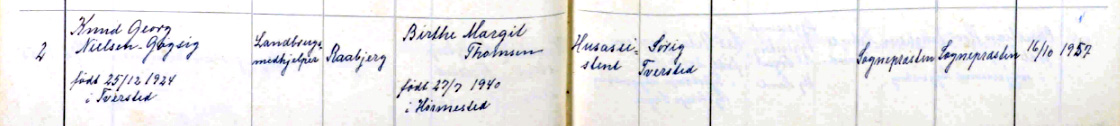 2
Knud Georg
Nielsen-Gøgsig
født 25/12 1924
i Tversted
Landbrugs-
medhjelper
Raabjerg
Birthe Margit
Thomsen
født 27/7 1940
i Hørmested
Husassi-
stent
Sørig
Tversted
Sognepræsten
Sognepræsten
16/10 1957